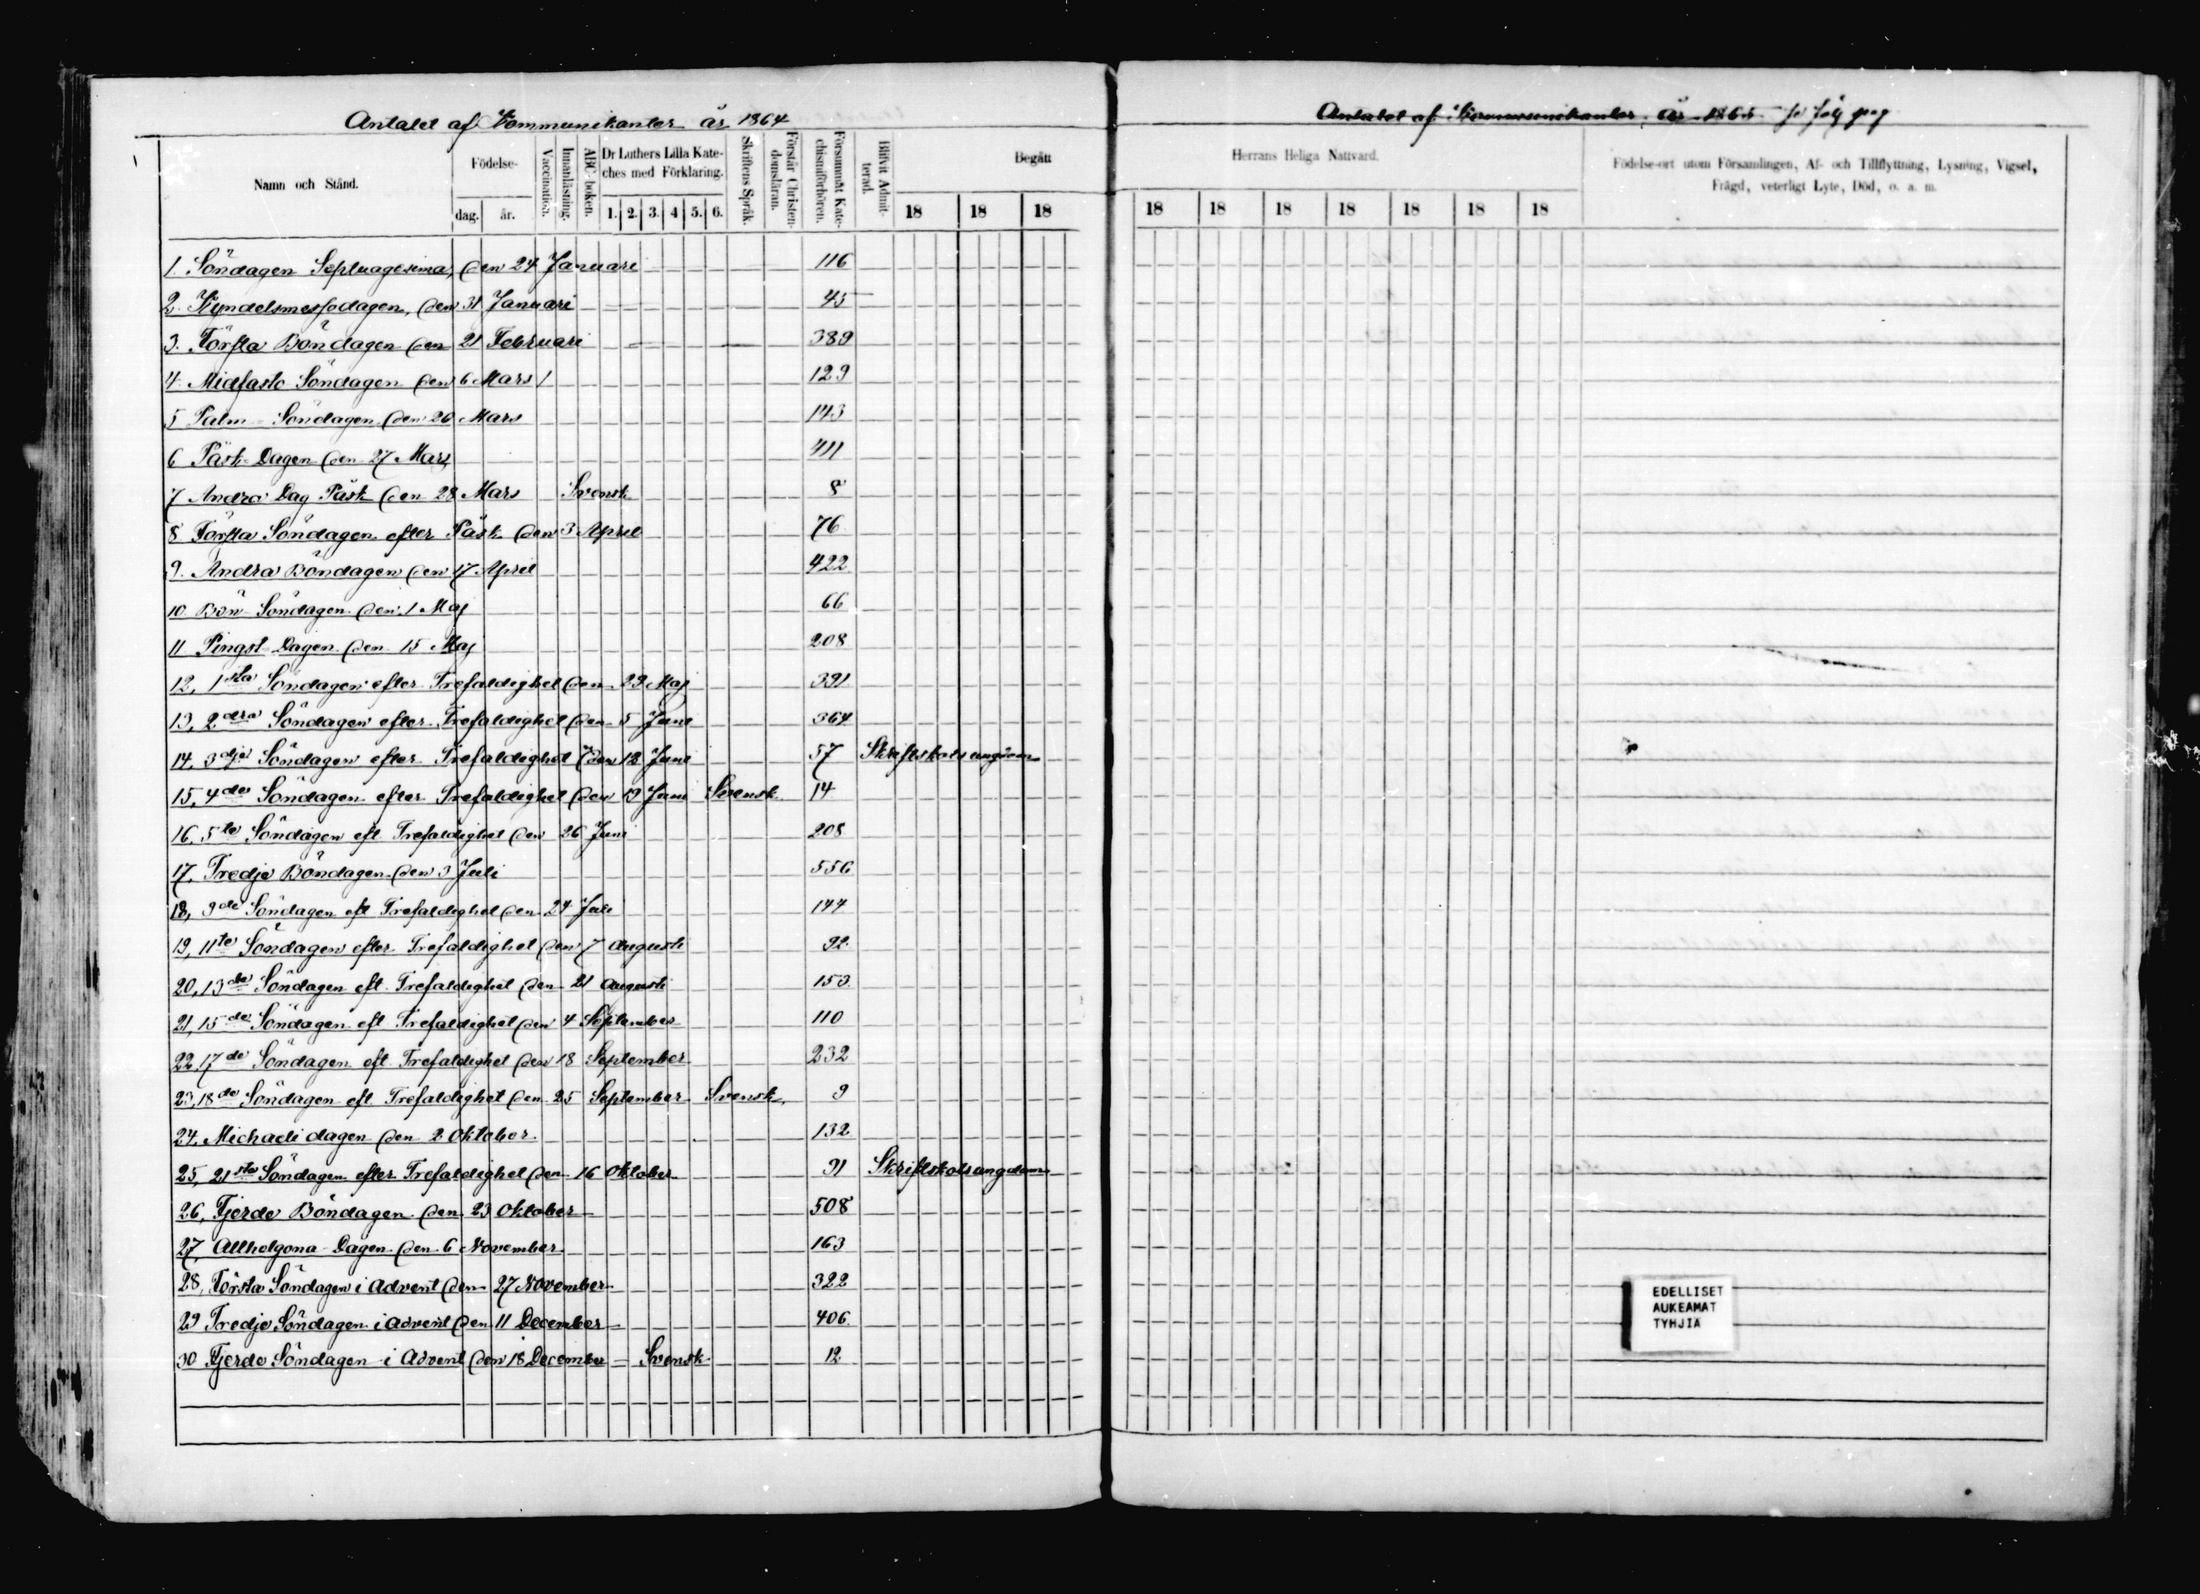 Antalet af Kommunikanter år 1864
Namn och Stånd.
Födelse-
dag. år.
Vaccination.
Innanläsning.
ABC-boken.
Dr Luthers Lilla Kate-
ches med Förklaring.
1. 2. 3. 4 5. 6.
Skriftens Språk.
Förstår Christen-
domsläran.
Försummat Kate-
chismiförhören.
Blifvit Admit-
terad.
Begått
18 18 18
1. Söndagen Septuagesima, den 24 Januari 116
2. Kyndelsmessodagen, den 31 Januari 45
3. Första Böndagen den 21 Februari 389
4. Midfasto Söndagen den 6 Mars 129
5 Palm-Söndagen den 20 Mars 143
6 Påsk-Dagen den 27 Mars 411
7 Andra Dag Påsk den 28 Mars Svensk 8
8 Första Söndagen efter Påsk den 3 April 76
9. Andra Böndagen den 17 April 422
10 Bön-Söndagen den 1 Maj 66
11 Pingst-Dagen den 15 Maj 208
12, 1sta Söndagen efter Trefaldighet den 29 Maj 391
13, 2dra Söndagen efter Trefaldighet den 5 Juni 364
14, 3dje Söndagen efter Trefaldighet den 12 Juni 57 Skriftskolsungdom
15, 4de Söndagen efter Trefaldighet den 19 Juni Svensk 14
16, 5te Söndagen eft Trefaldighet den 26 Juni 208
17, Tredje Böndagen den 3 Juli 556
18, 9de Söndagen eft Trefaldighet den 24 Juli 144
19, 11te Söndagen efter Trefaldighet den 7 Augusti 92
20, 13de Söndagen eft Trefaldighet den 21 Augusti 153
21, 15de Söndagen eft Trefaldighet den 4 September 110
22, 17de Söndagen eft Trefaldighet den 18 September 232
23, 18de Söndagen eft Trefaldighet den 25 September Svensk 9
24, Michaeli dagen den 2 Oktober 132
25, 21sta Söndagen efter Trefaldighet den 16 Oktober 91 Skriftskolsungdom
26, Fjerde Böndagen den 23 Oktober 508
27, Allhelgona-Dagen den 6 November 163
28, Första Söndagen i Advent den 27 November 322
29 Tredje Söndagen i Advent den 11 December 406
30 Fjerde Söndagen i Advent den 18 December Svensk 12
Antalet af Kommunikanter år 1865
Herrans Heliga Nattvard.
Födelse-ort utom Församlingen, Af- och Tillflyttning, Lysning, Vigsel,
Frägd, veterligt Lyte, Död, o. a. m.
18 18 18 18 18 18 18
EDELLISET
AUKEAMAT
TYHJIÄ